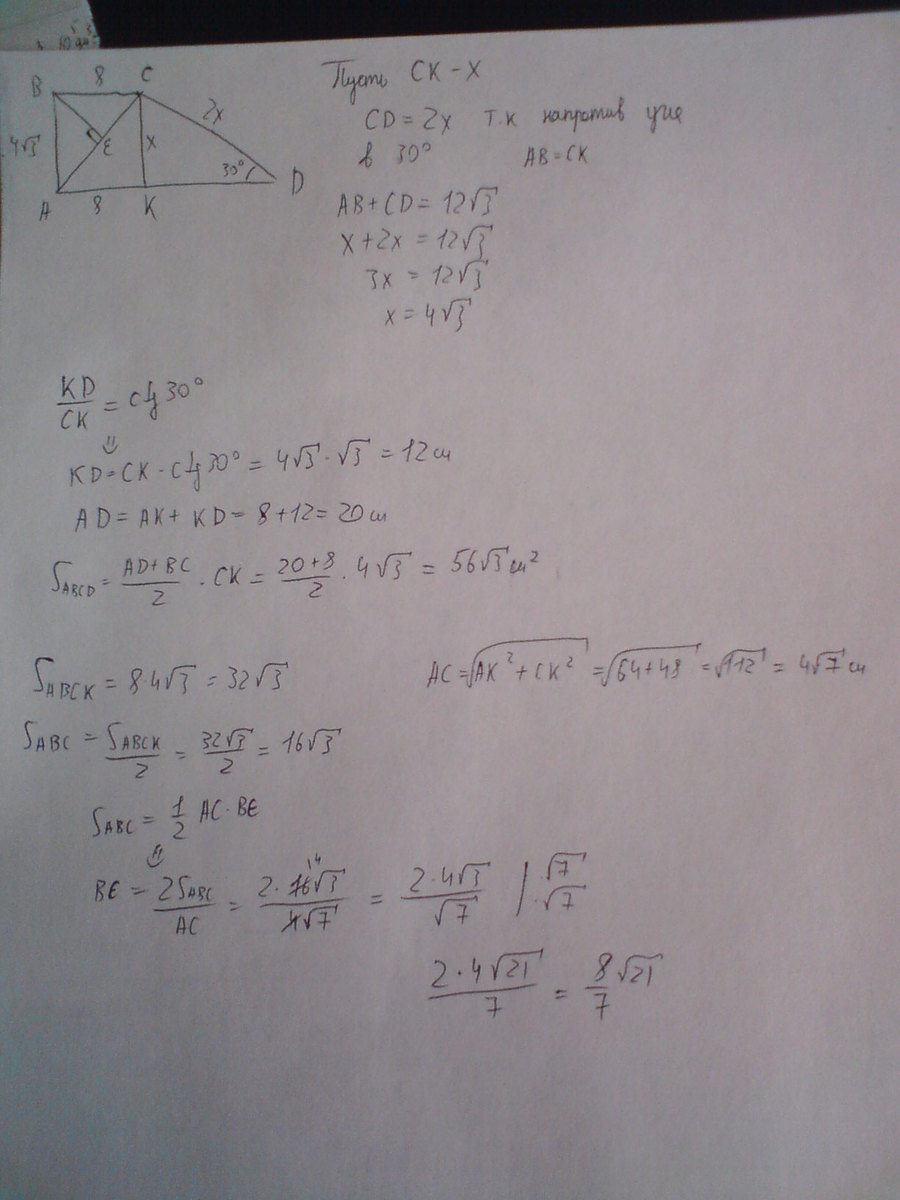 B 8 C
2x
4√3 E x
30° D
A 8 K
Пусть CK - X
CD = 2x т.к напротив угла
в 30° AB = CK
AB + CD = 12√3
x + 2x = 12√3
3x = 12√3
x = 4√3
KD/CK = ctg 30°
⇓
KD = CK · ctg 30° = 4√3 · √3 = 12 см
AD = AK + KD = 8 + 12 = 20 см
S_ABCD = (AD + BC)/2 · CK = (20 + 8)/2 · 4√3 = 56√3 см²
S_ABCK = 8·4√3 = 32√3
AC = √(AK² + CK²) = √(64 + 48) = √112 = 4√7 см
S_ABC = S_ABCK/2 = 32√3/2 = 16√3
S_ABC = 1/2 AC · BE
⇓
BE = 2S_ABC/AC = 2 · 16√3/4√7 = 2 · 4√3/√7 | · √7/· √7
2 · 4√21/7 = 8/7 √21